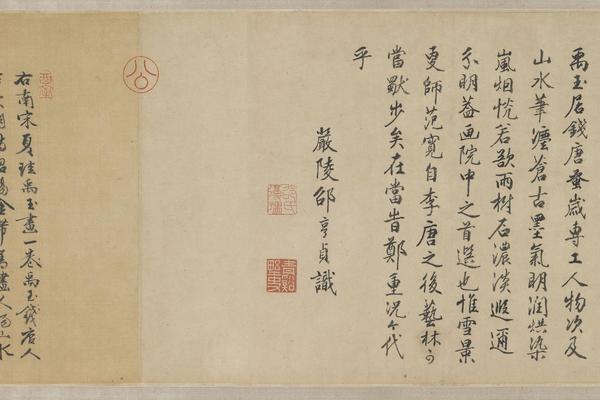 禹玉居錢唐蚤歲専工人物次及
山水筆灋蒼古墨氣明潤烘染
嵐烟恍若欲雨樹石濃淡遐邇
分明蓋画院中之首選也惟雪景
更師范寬自李唐之後藝林可
當步矣在當旹鄭重況今代
乎
嚴陵邵亨貞識
公
右南宋夏珪禹玉畫一卷禹玉錢唐人
金帶善畫人物山水